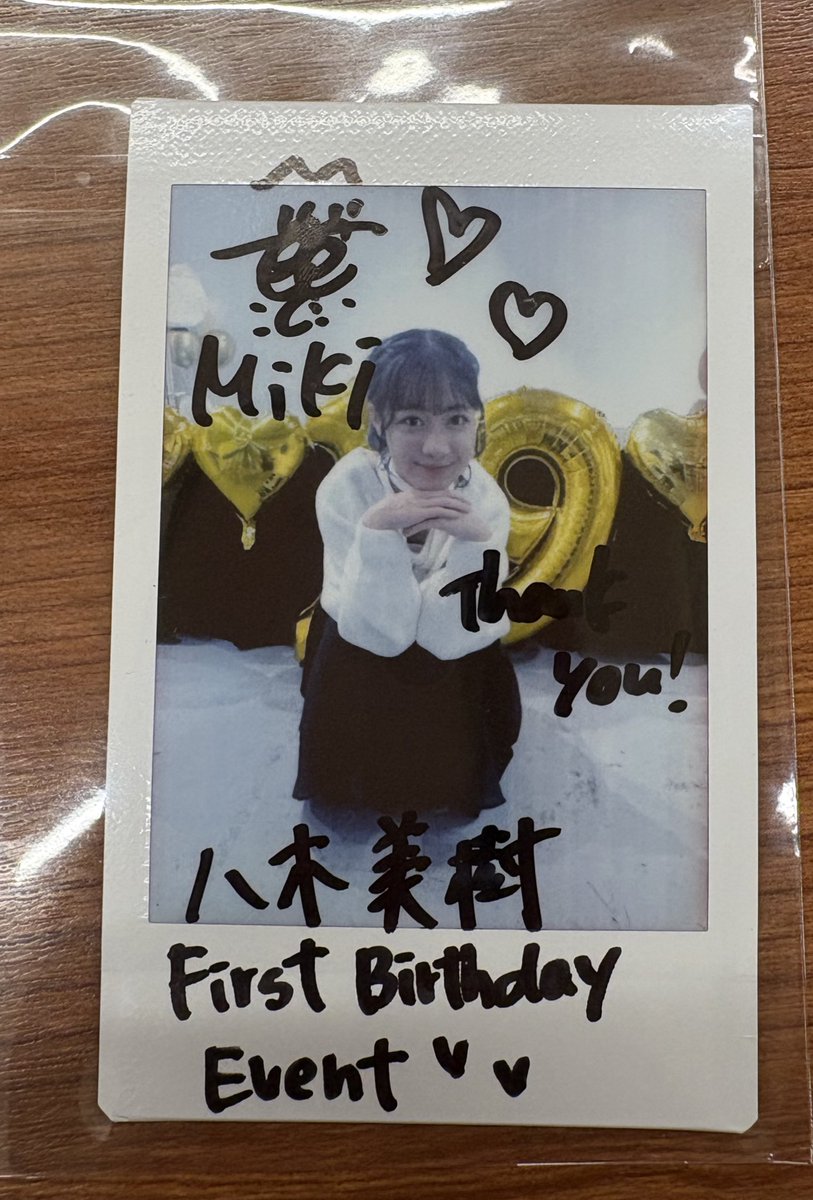 Miki
9
Thank
you!
八木美樹
First Birthday
Event